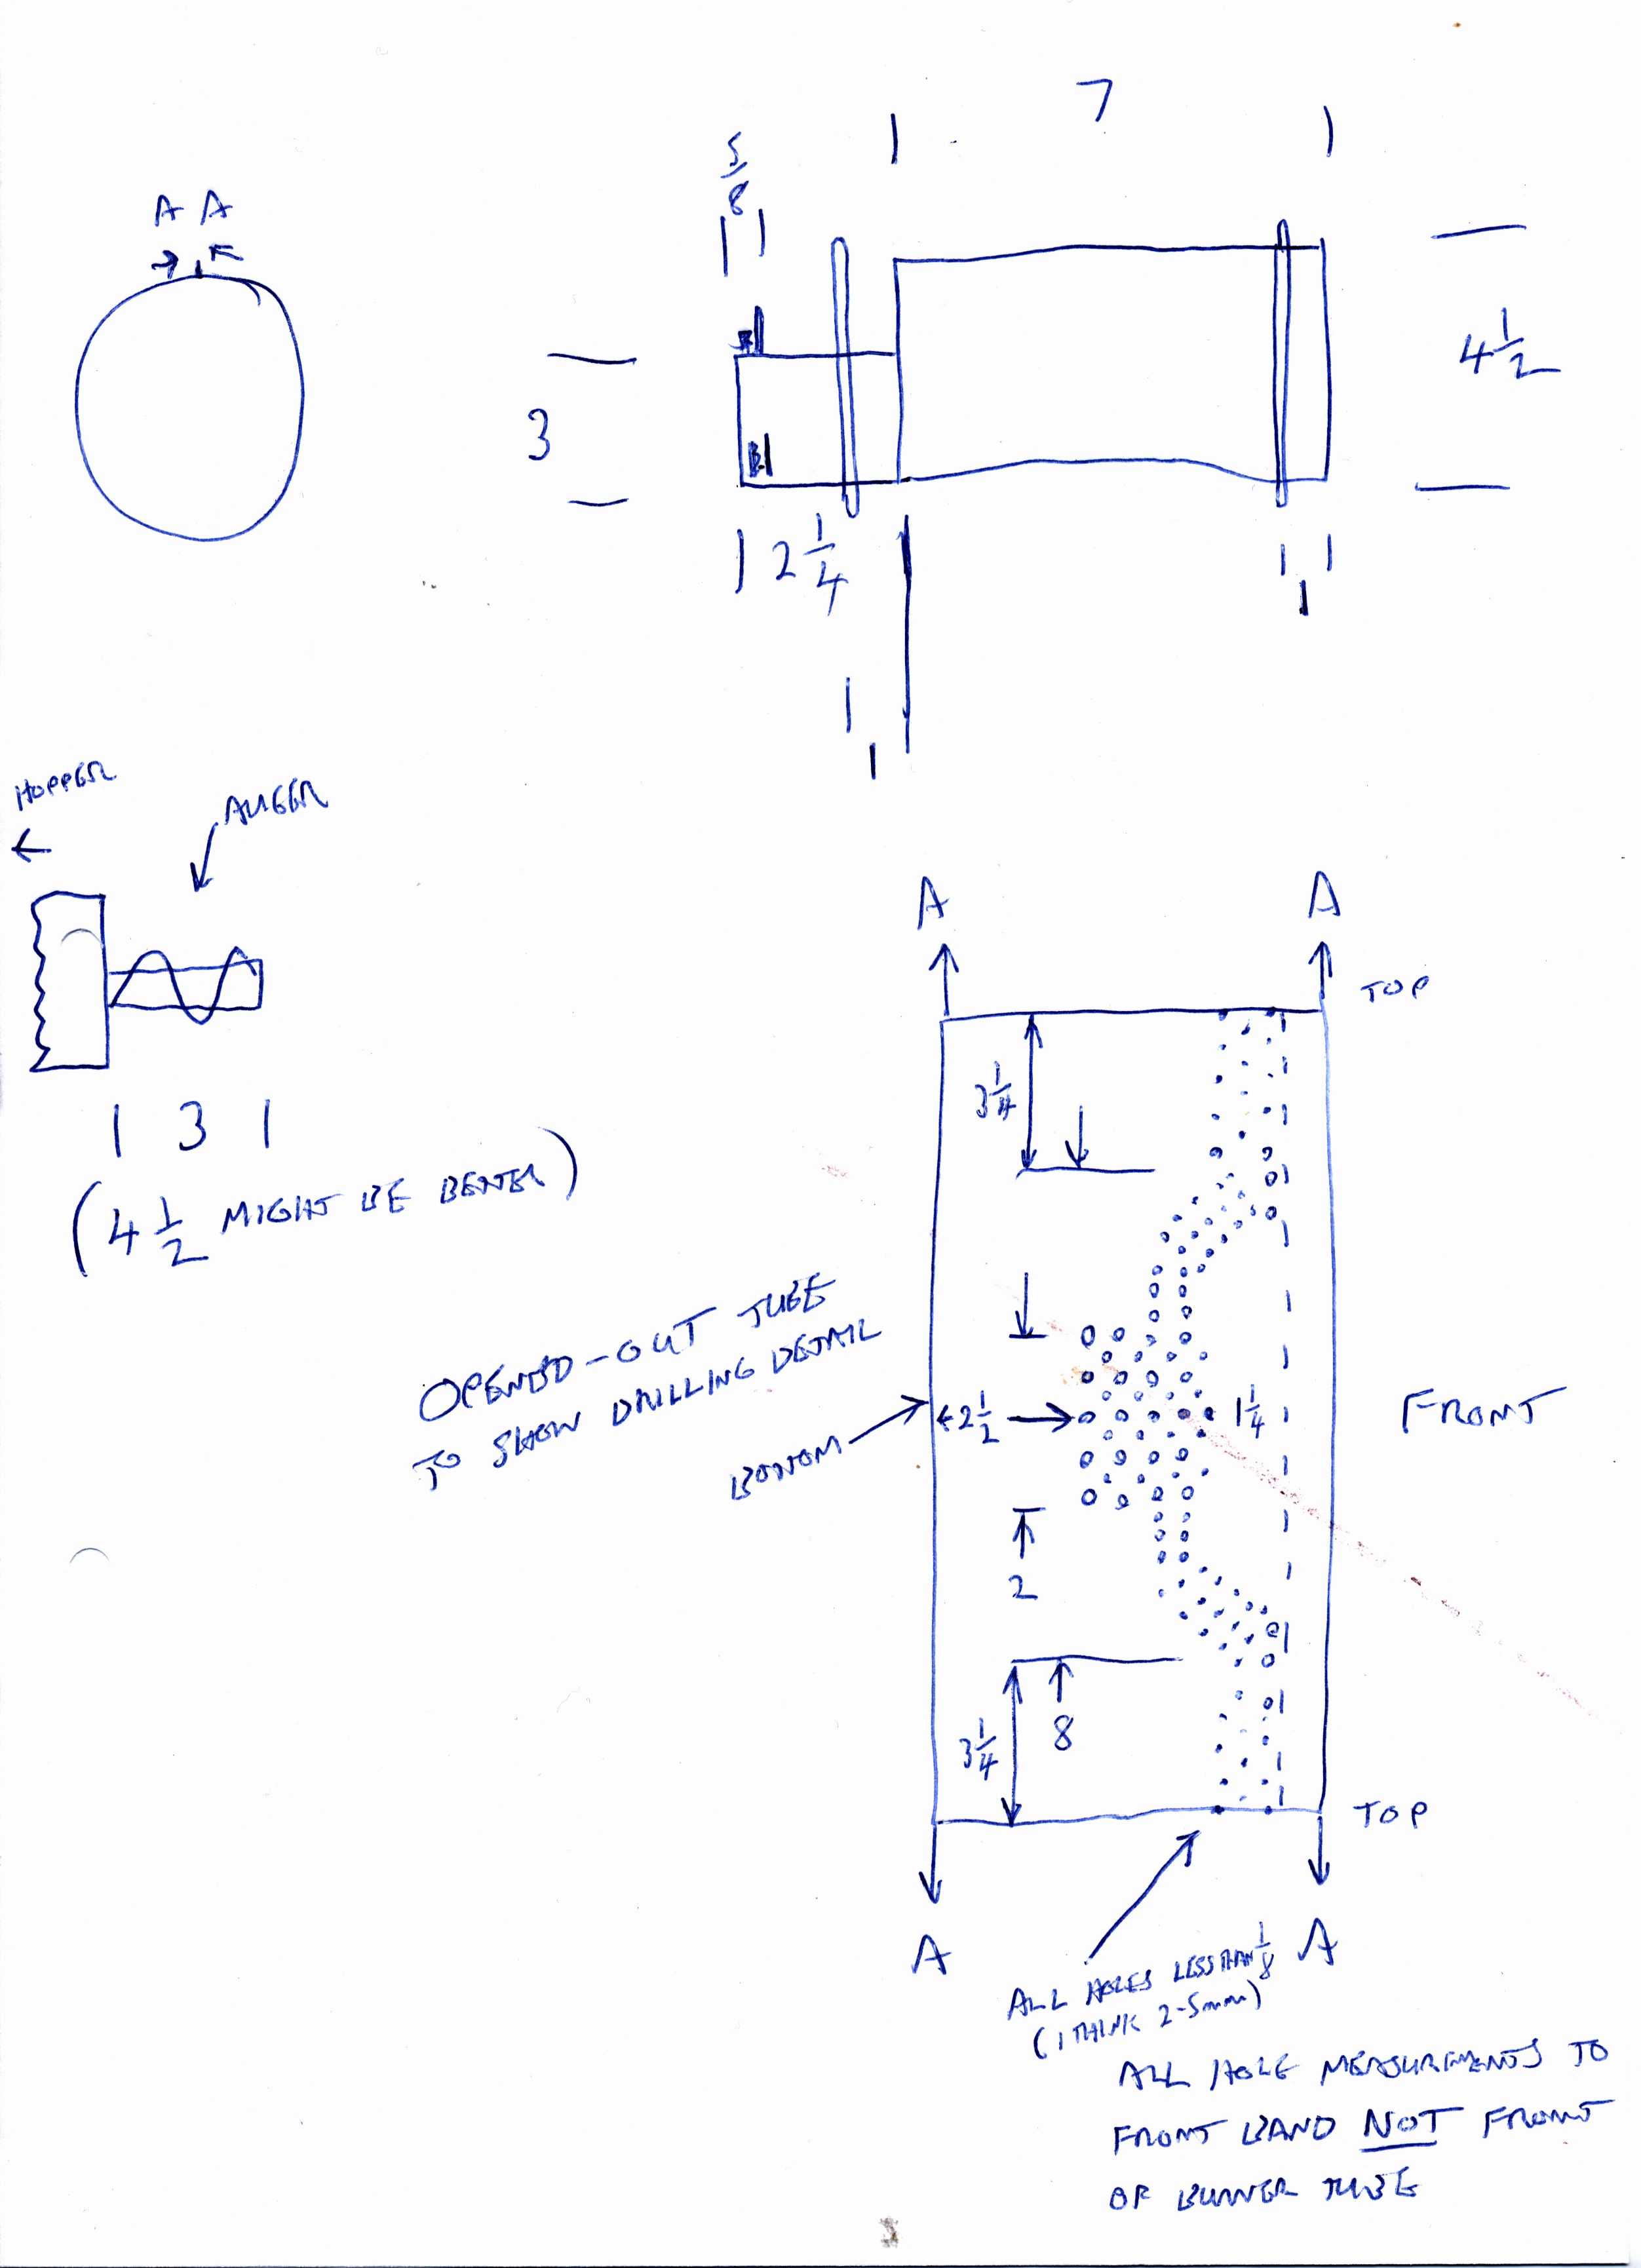 7
5/8
A A
4 1/2
3
2 1/4
1
1
HOPPER
AUGER
3
(4 1/2 MIGHT BE BETTER)
A A
TOP
3 1/4
OPENED-OUT TUBE
TO SHOW DRILLING DETAIL
BOTTOM
2 1/2
1 1/4
FRONT
2
8
3 1/4
TOP
A A
ALL HOLES LESS THAN 1/8
(I THINK 2-5mm)
ALL HOLE MEASUREMENTS TO
FRONT BAND NOT FRONT
OF BURNER TUBE